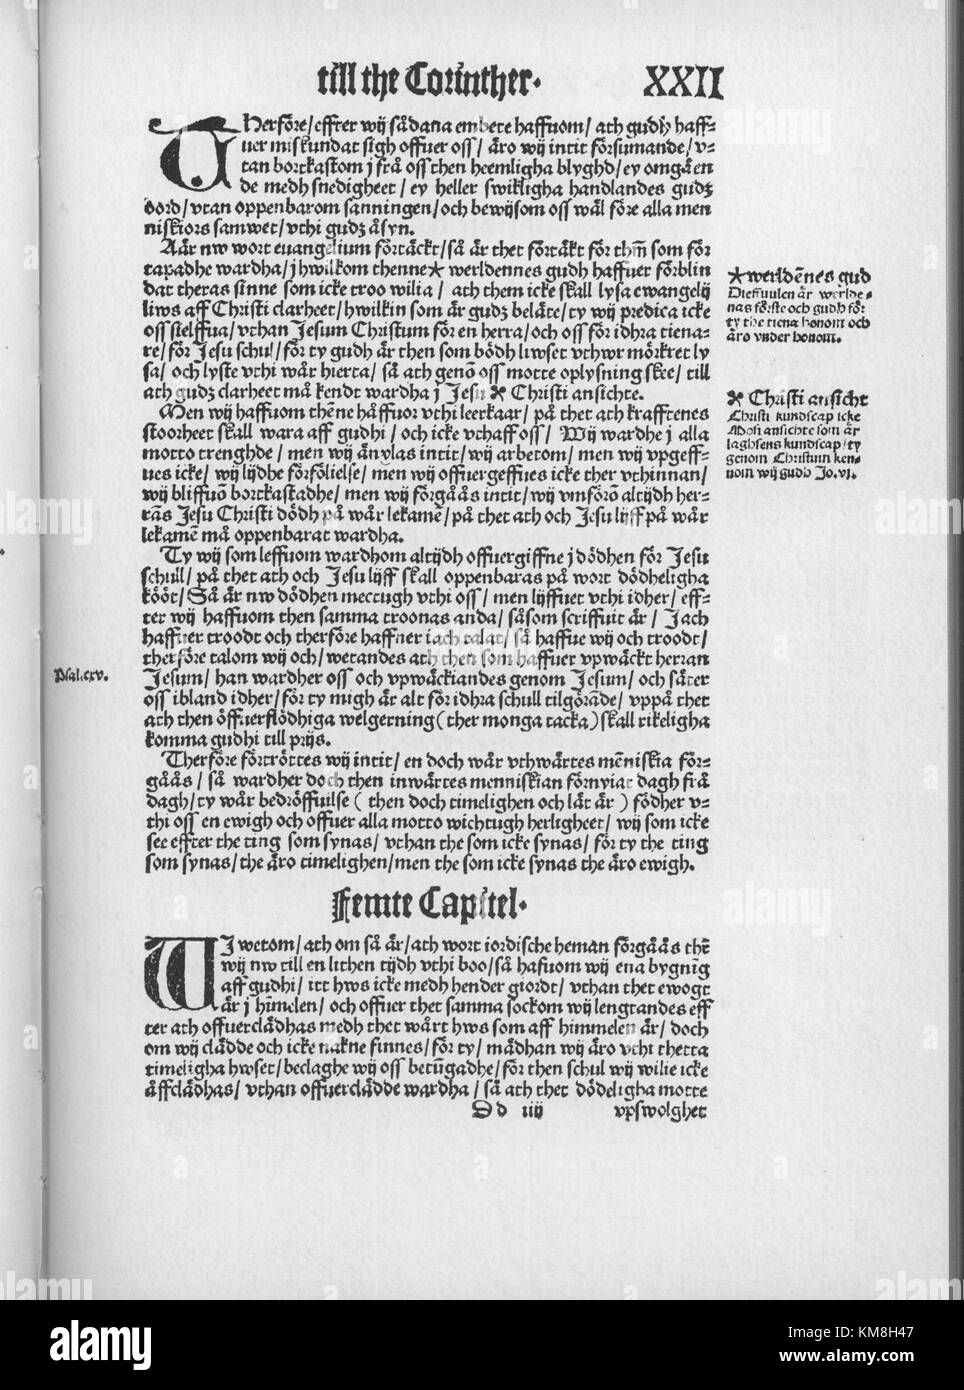 till the Corinther.
XXII
THerföre/effter wij sådana embete haffuom/ath gudh haff-
uer miskundat sigh offuer oss/äro wij intit försumande/v-
tan bortkastom j frå oss then heemligha blyghd/ey omgåen
de medh snedigheet/ey heller swikligha handlandes gudz
oord/vtan oppenbarom sanningen/och bewijsom oss wäl före alla men
niskiors samwet/vthi gudz åsyn.
Aär nw wort euangelium förtäckt/så är thet förtäkt för thm̄ som för
tapadhe wardha/j hwilkom thenne* werldennes gudh haffuer förblin
dat theras sinne som icke troo wilia/ath them icke skall lysa ewangelij
liws aff Christi clarheet/hwilkin som är gudz beläte/ty wij predica icke
oss sielffua/vthan Jesum Christum för en herra/och oss för idhra tiena-
re/för Jesu schul/för ty gudh är then som bödh liwset vthwr mörkret ly
sa/och lyste vthi wår hierta/så ath genō oss motte oplysning skee/till
ath gudz clarheet må kendt wardha j Jesu ✠ Christi ansichte.
Men wij haffuom thēne håffuor vthi leerkaar/på thet ath krafftenes
stoorheet skall wara aff gudhi/och icke vthaff oss/Wij wardhe j alla
motto trenghde/men wij änxlas intit/wij arbetom/men wij vpgeff-
ues icke/wij lijdhe förfölielse/men wij offuergeffues icke ther vthinnan/
wij bliffuō bortkastadhe/men wij förgåås intit/wij vmförō altijdh her-
rās Jesu Christi dödh på wår lekamē/på thet ath och Jesu lijff på wår
lekamē må oppenbarat wardha.
Ty wij som leffuom wardhom altijdh offuergiffne j dödhen för Jesu
schull/på thet ath och Jesu lijff skall oppenbaras på wort dödheligha
kööt/Så är nw dödhen mectugh vthi oss/men lijffuet vthi idher/eff-
ter wij haffuom then samma troonas anda/såsom scriffuit är/Jach
haffuer troodt och therföre haffuer iach talat/så haffue wij och troodt/
therföre talom wij och/wetandes ath then som haffuer vpwäckt herran
Jesum/han wardher oss och vpwäckiandes genom Jesum/och säter
oss ibland idher/för ty migh är alt för idhra schull tilgörāde/vppå thet
ath then öffuerflödhiga welgerning (ther monga tacka) skall rikeligha
komma gudhi till prijs.
Therföre förtröttes wij intit/en doch wår vthwårtes mēniskia för-
gåås/så wardher doch then inwårtes menniskian förnyiat dagh frå
dagh/ty wår bedröffuilse (then doch timelighen och lät är) födher v-
thi oss en ewigh och offuer alla motto wichtugh herligheet/wij som icke
see effter the ting som synas/vthan the som icke synas/för ty the ting
som synas/the äro timelighen/men the som icke synas the äro ewigh.
Femte Capitel.
WJ wetom/ath om så är/ath wort iordische heman förgåås thz̄
wij nw till en lithen tijdh vthi boo/så hafuom wij ena bygnīg
aff gudhi/itt hws icke medh hender giordt/vthan thet ewogt
är j hīmelen/och offuer thet samma sockom wij lengtandes eff
ter ath offuerclädhas medh thet wårt hws som aff himmelen är/doch
om wij clädde och icke nakne finnes/för ty/mädhan wij äro vthi thetta
timeligha hwset/beclaghe wij oss betūgadhe/för then schul wij wilie icke
äffclädhas/vthan offuerclädde wardha/så ath thet dödeligha motte
Dd iiij
vpswolghet
*werldēnes gud
Dieffuulen är werlde-
nas förste och gudh för
ty the tiena honom och
äro vnder honom.
✠ Christi ansicht
Christi kundscap icke
Mosi ansichte som är
laghsens kundscap/ty
genom Christum ken-
nom wij gudh Jo.vi.
Psal.cxv.
alamy
KM8H47
www.alamy.com